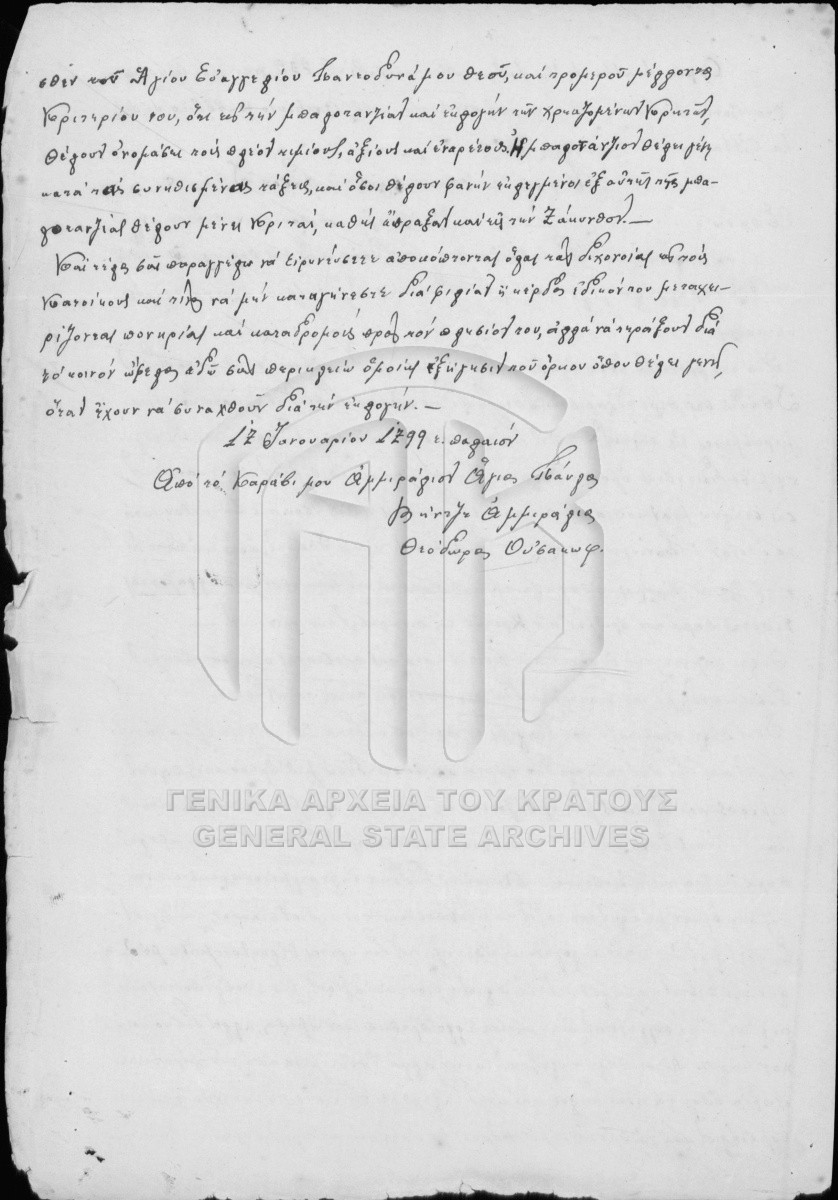 σθεν τοῦ Ἁγίου Εὐαγγελίου Παντοδυνάμου Θεοῦ, καὶ τρομεροῦ μέλλοντος
Κριτηρίου του, ὅτι εἰς τὴν μπαλοταντζίαν καὶ ἐκλογὴν τῶν χρειαζομένων Κριτῶν,
θέλουν ὀνομάσει τοὺς πλέον τιμίους, ἀξίους καὶ ἐναρέτους. Ἡ μπαλοτάντζια θέλει γένῃ
κατὰ ταῖς συνηθισμέναις τάξεις, καὶ ὅσοι θέλουν φανῆν ἐκλεγμένοι ἐξ αὐτῆς τῆς μπα-
λοταντζίας θέλουν μένει Κριταί, καθὼς ἔπραξα καὶ εἰς τὴν Ζάκυνθον. —
Καὶ τέλος σᾶς παραγγέλω νὰ εἰρηνεύσετε ἀποκόπτοντας ὅλας τὰς διχονοίας εἰς τοὺς
Κατοίκους καὶ τινὰς νὰ μὴν καταγίνεστε διὰ φιλίαν ἢ κέρδος ἐδικόν του μεταχει-
ρίζοντας πονηρίας καὶ καταδρομαῖς πρὸς τὸν πλησίον του, ἀλλὰ νὰ πράξουν διὰ
τὸ κοινὸν ὤφελος ἐδῶ σᾶς περικλείω ὁμοίως ἐξήγησιν τοῦ ὅρκου ὅπου θέλει γενῇ,
ὅταν ἔχουν νὰ συναχθοῦν διὰ τὴν ἐκλογήν. —
17 Ἰανουαρίου 1799 ἔ. παλαιόν
Ἀπὸ τὸ Καράβι μου Ἀμμιράλιον Ἅγιος Παῦλος
Βήντζε Ἀμμιράλιος
Θεόδωρος Οὐσακωφ.
ΓΕΝΙΚΑ ΑΡΧΕΙΑ ΤΟΥ ΚΡΑΤΟΥΣ
GENERAL STATE ARCHIVES